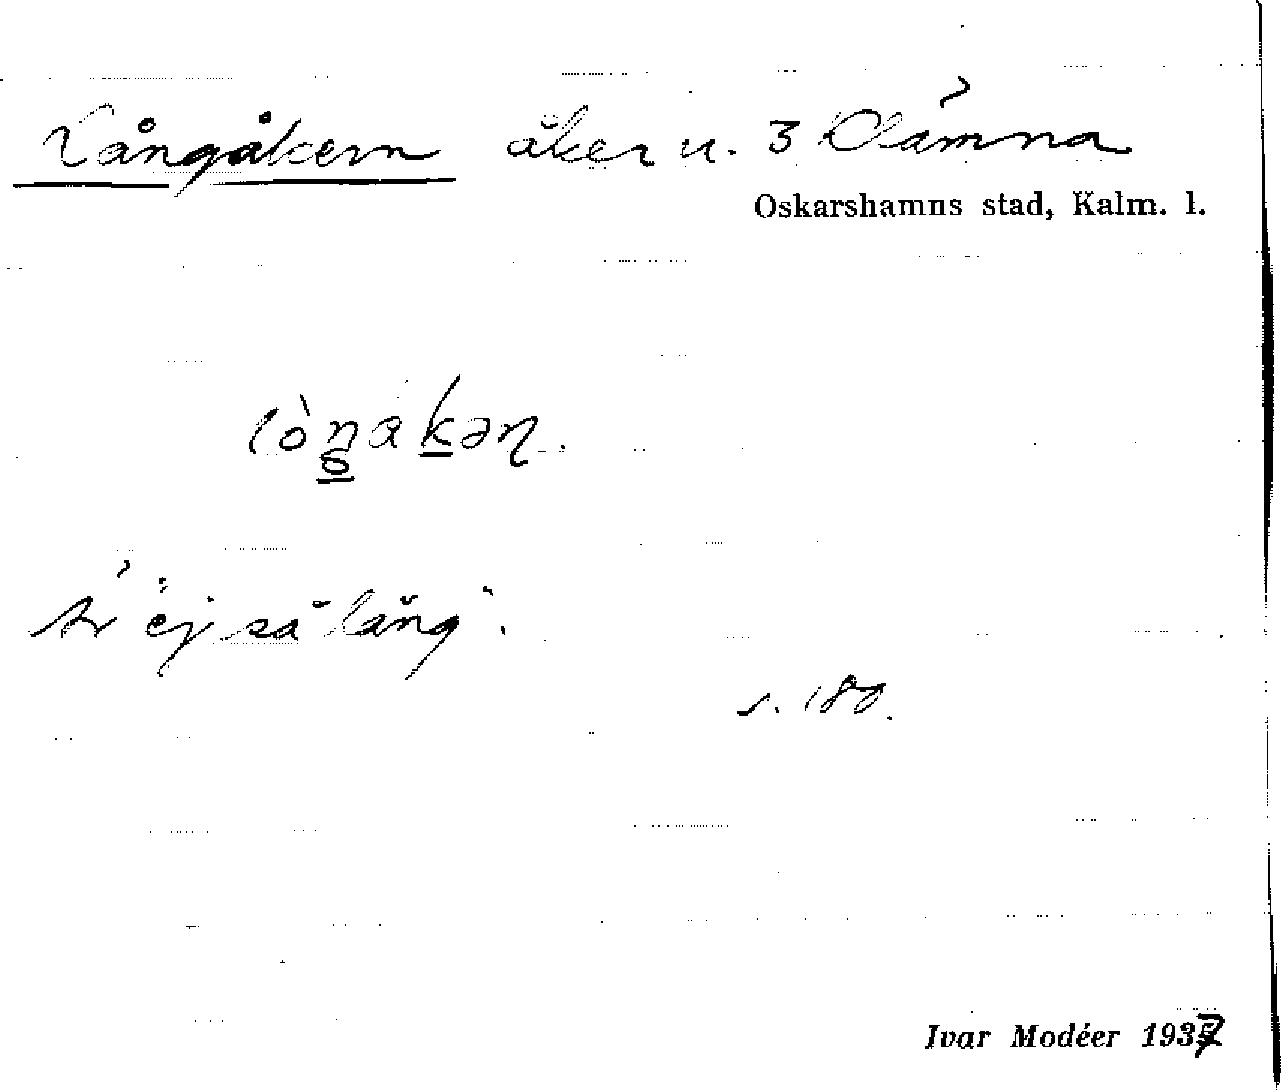 Långåkern åker u. 3 Hämna
Oskarshamns stad, Kalm. l.
lòŋakəɳ.
Är "ej så lång".
s. 180.
Ivar Modéer 1937